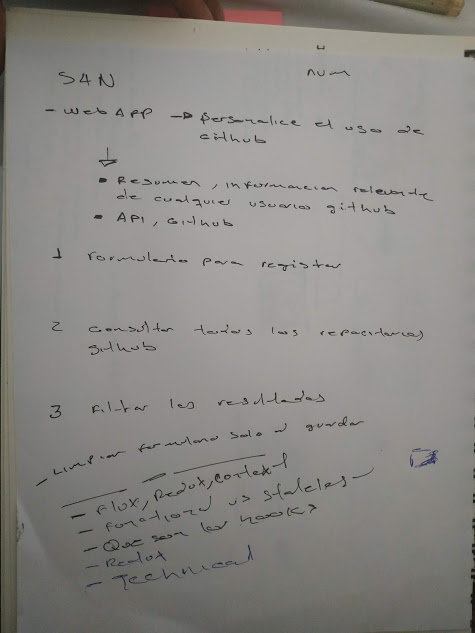 S4N
num
- Web APP → Personalice el uso de
github
• Resumen, informacion relevante
de cualquier usuario github
• API, Github
1 Formulario para registar
2 Consultar todos los repositorios
github
3 Filtrar los resultados
- Limpiar formulario solo al guardar
- Flux, Redux, Context
- Functional vs Stateless
- Que son los hooks
- Redux
- Technical